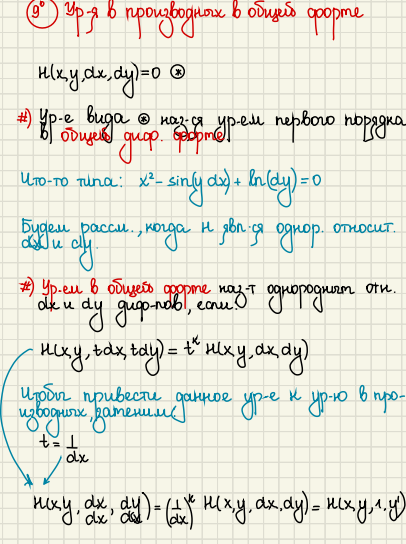 9° Ур-я в производных в общей форме
H(x,y,dx,dy)=0 ⊛
#) Ур-е вида ⊛ наз-ся ур-ем первого порядка
в общей диф. форме.
Что-то типа: x² - sin(y dx) + ln(dy) = 0
Будем рассм., когда H явл-ся однор. относит.
dx и dy.
#) Ур-ем в общей форме наз-т однородным отн.
dx и dy диф-лов, если:
H(x,y,tdx,tdy) = t^k H(x,y,dx,dy)
Чтобы привести данное ур-е к ур-ю в про-
изводных, заменим:
t = 1/dx
H(x,y, dx/dx, dy/dx) = (1/dx)^k H(x,y,dx,dy) = H(x,y,1,y')